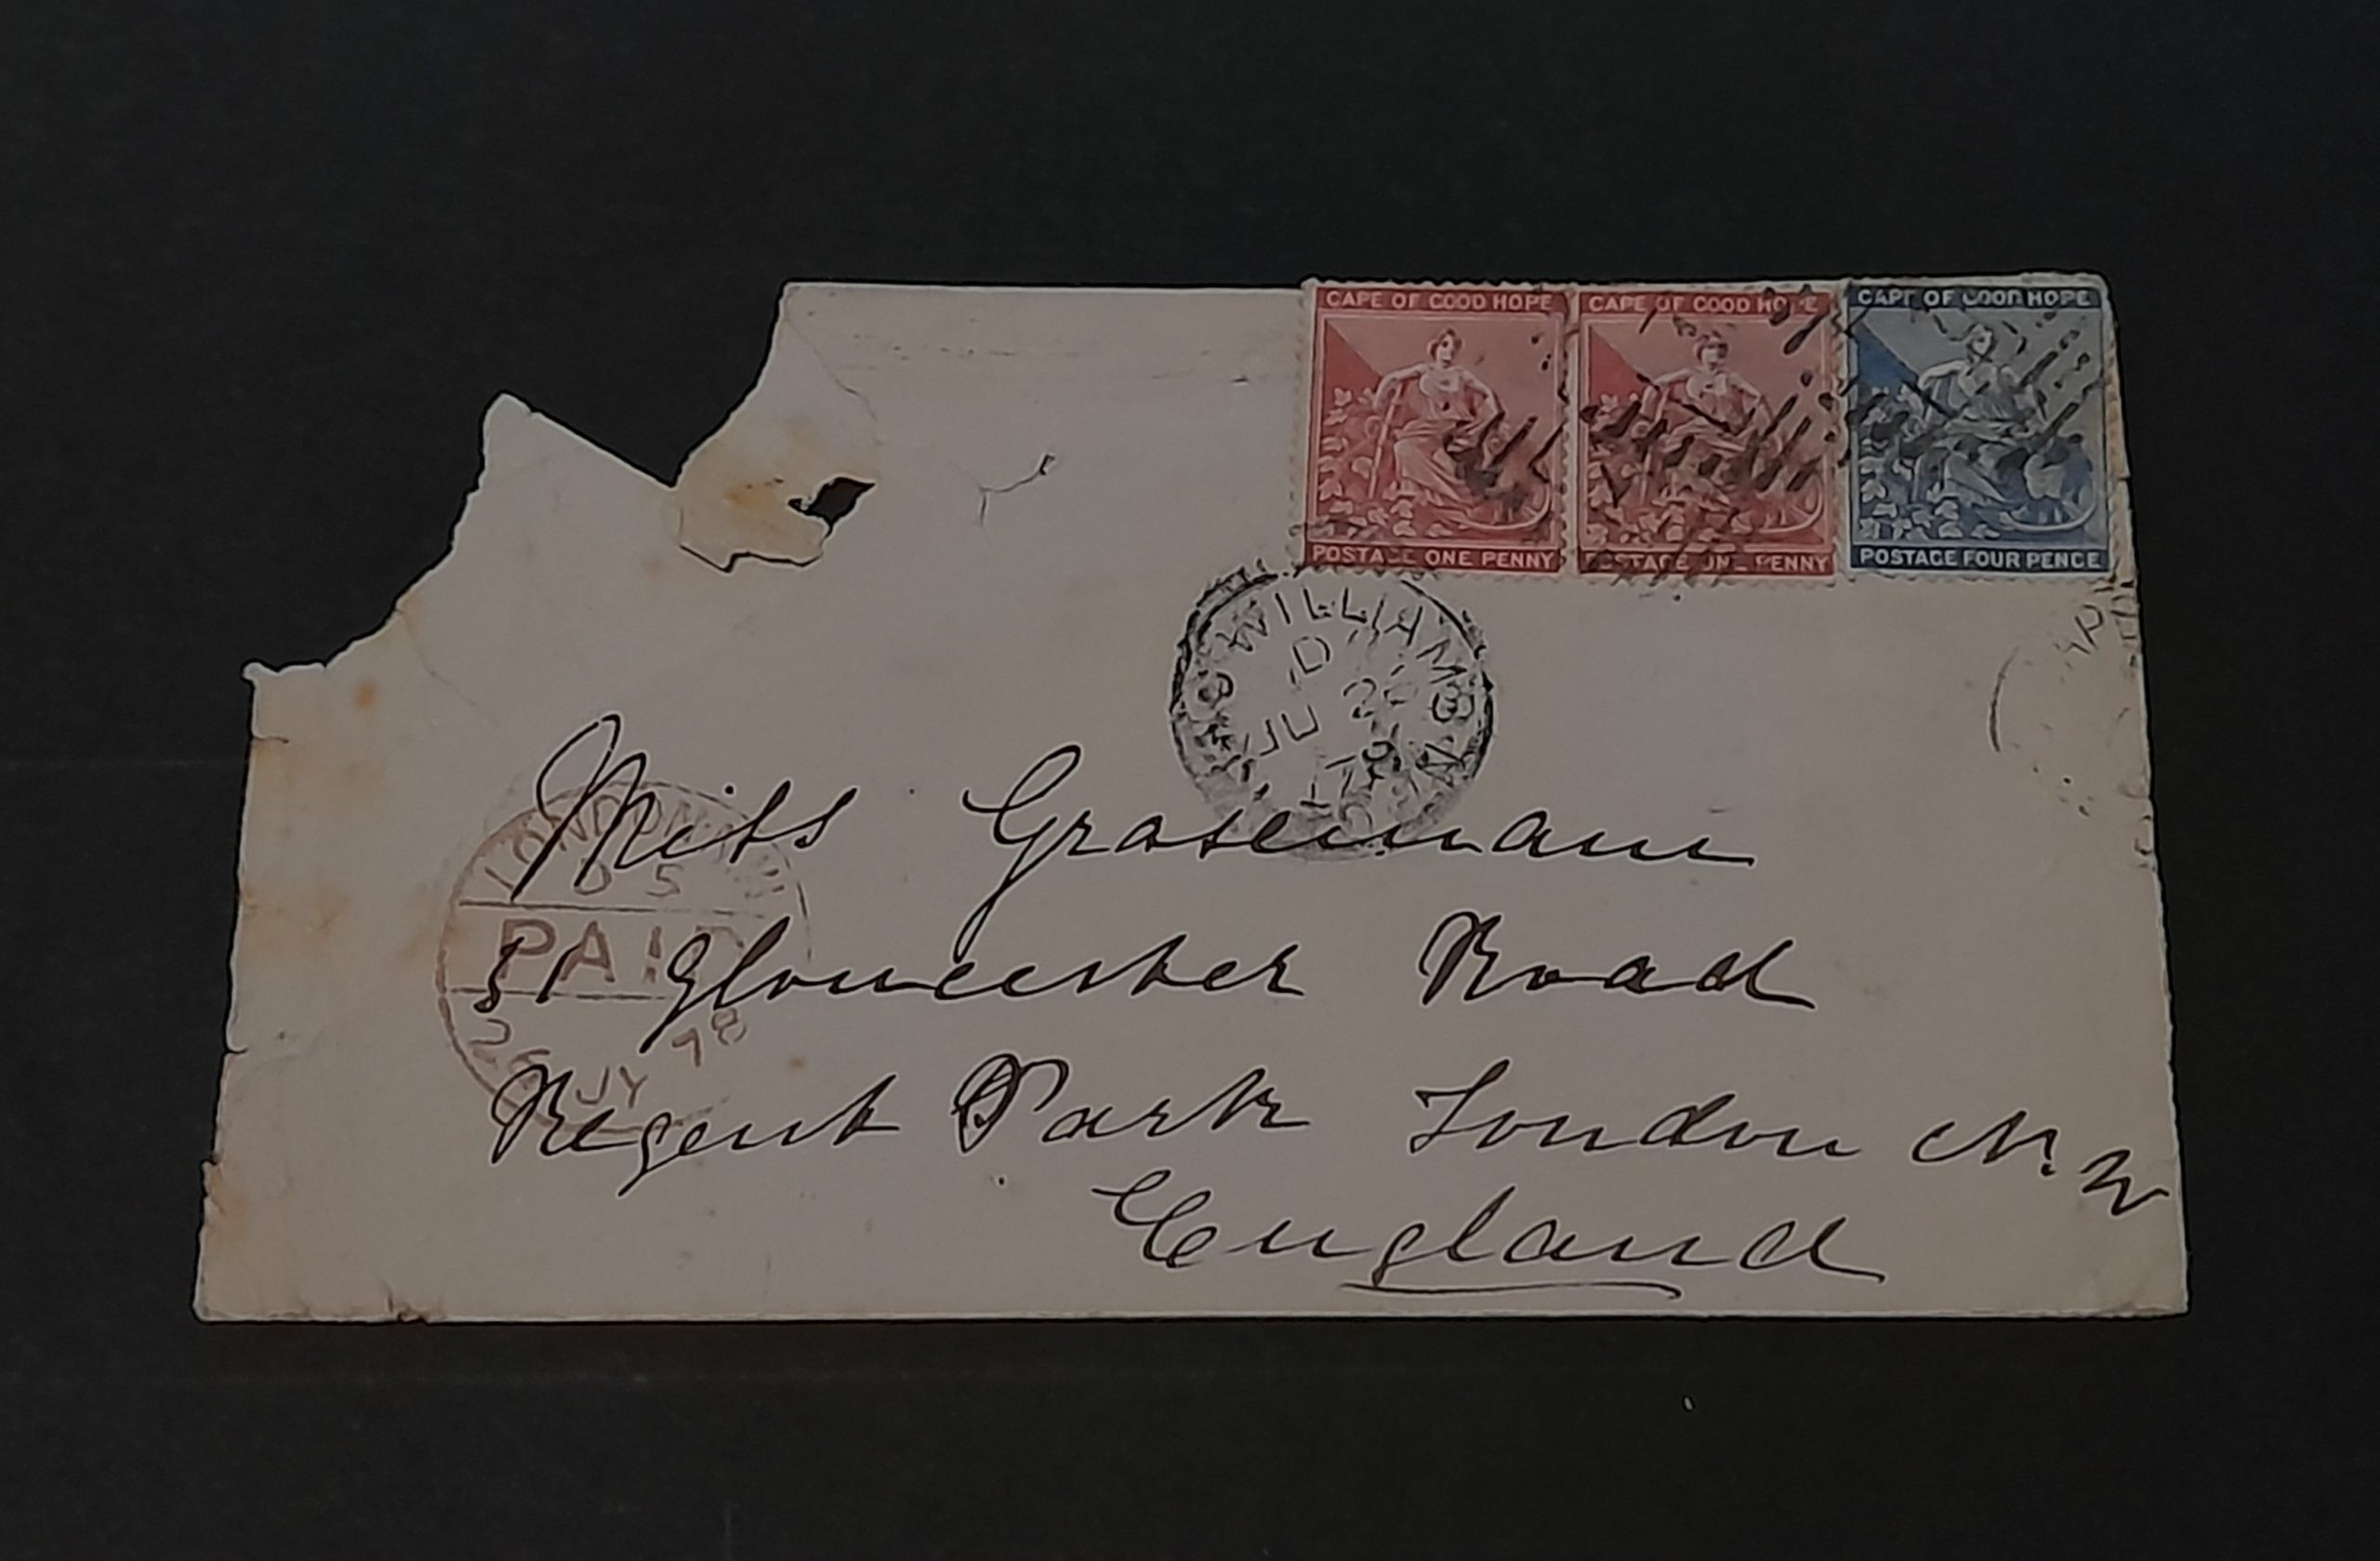 CAPE OF GOOD HOPE CAPE OF GOOD HOPE CAPE OF GOOD HOPE
POSTAGE ONE PENNY POSTAGE ONE PENNY POSTAGE FOUR PENCE
WILLIAM
D
JU 2
78
LONDON
D 5
PAID
JY 78
Miss
51 Gloucester Road
Regent Park London N.W
England